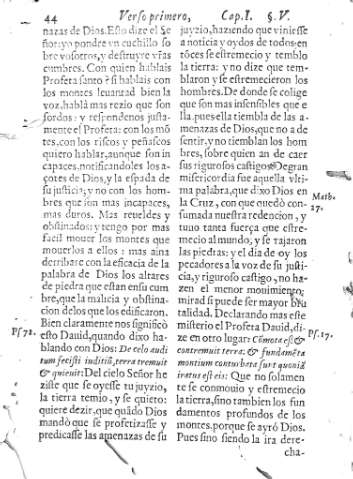 44 Verso primero, Cap. I. §. V.
nazas de Dios. Esto dize el Se
ñor: yo pondre vn cuchillo so
bre vosotros, y destruyre vr̃as
cumbres. Con quien hablais
Profeta santo? si hablais con
los montes leuantad bien la
voz, hablà mas rezio que son
sordos: y respondenos justa-
mente el Profeta: con los mõ
tes, con los riscos y peñascos
quiero hablar, aunque son in
capaces, notificandoles los a-
çotes de Dios, y la espada de
su justicia, y no con los hom-
bres que son mas incapaces,
mas duros. Mas reueldes y
obstinados: y tengo por mas
facil mouer los montes que
mouerlos a ellos: mas aina
derribarè con la eficacia de la
palabra de Dios los altares
de piedra que estan en su cum
bre, que la malicia y obstina-
cion de los que los edificaron.
Bien claramente nos significò
Ps 72. esto Dauid, quando dixo ha-
blando con Dios: De cælo audi
tum fecisti iuditiũ, terra tremuit
& quieuit: Del cielo Señor he
ziste que se oyesse tu juyzio,
la tierra temio, y se quieto:
quiere dezir, que quãdo Dios
mandò que se profetizasse y
predicasse las amenazas de su
juyzio, haziendo que viniesse
a noticia y oydos de todos: en
tõces se estremecio y temblo
la tierra: y no dize que tem-
blaron y se estremecieron los
hombres. De donde se colige
que son mas insensibles que e
lla. pues ella tiembla de las a-
menazas de Dios, que no a de
sentir, y no tiemblan los hom
bres, sobre quien an de caer
sus rigurosos castigos. De gran
misericordia fue aquella vlti-
ma palabra, que dixo Dios en
la Cruz, con que quedò con-
Math. 27.
sumada nuestra redencion, y
tuuo tanta fuerça que estre-
mecio al mundo, y se rajaron
las piedras: y el dia de oy los
pecadores a la voz de su justi-
cia, y riguroso castigo, no ha-
zen el menor mouimiento;
mirad si puede ser mayor bru
talidad. Declarando mas este
misterio el Profeta Dauid, di-
ze en otro lugar: Cõmota est & Ps. 17.
contremuit terra: & fundamẽta
montium conturbata sunt quoniã
iratus est eis: Que no solamen
te se conmouio y estremecio
la tierra, sino tambien los fun
damentos profundos de los
montes, porque se ayrò Dios.
Pues sino siendo la ira dere-
cha-